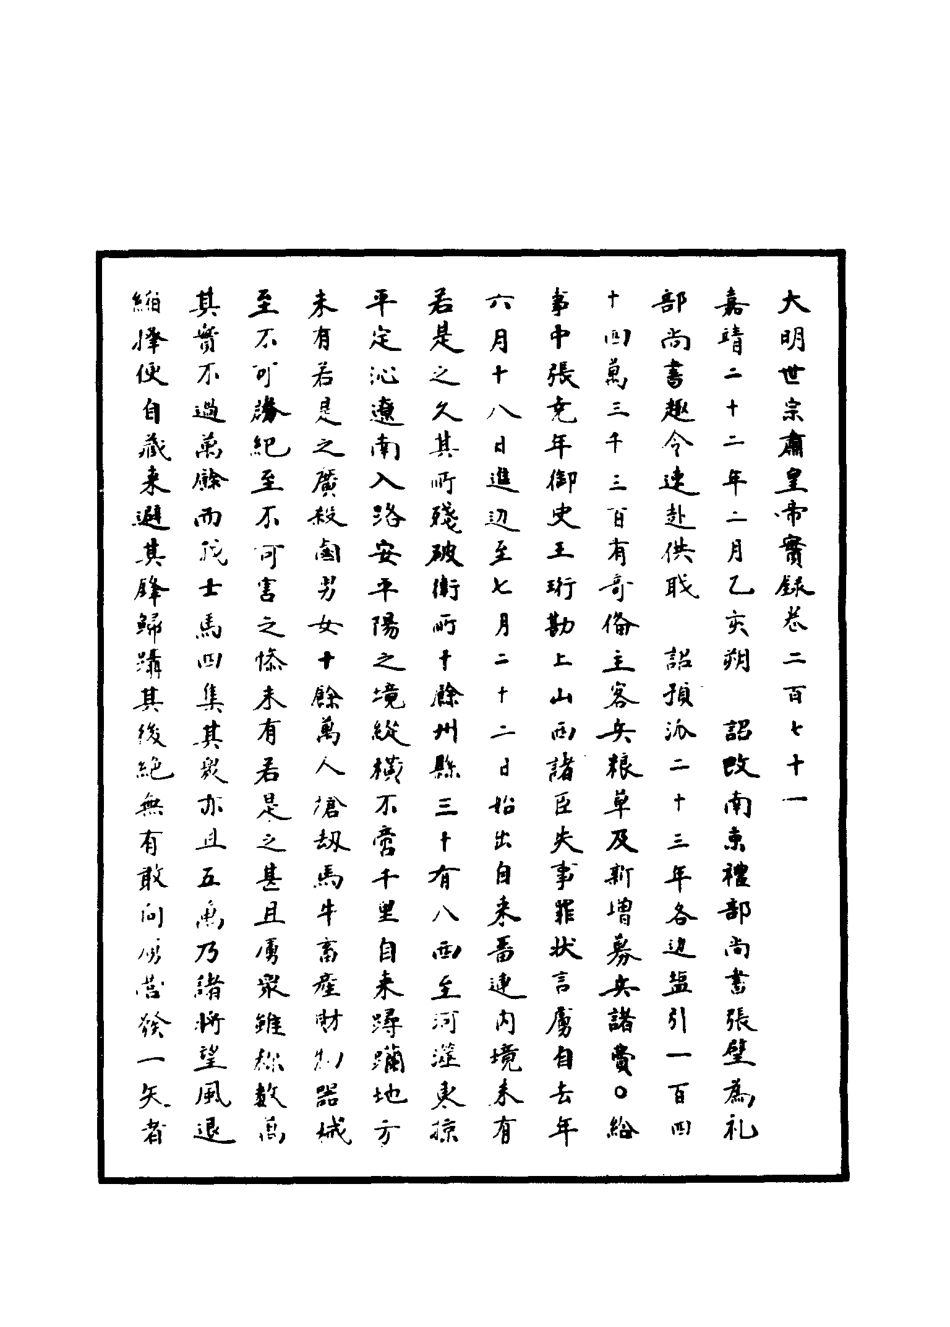 大明世宗肅皇帝實録卷二百七十一
嘉靖二十二年二月乙亥朔　詔改南京禮部尚書張璧為礼
部尚書趣令速赴供職　詔預派二十三年各边盐引一百四
十四萬三千三百有奇俻主客兵粮草及新增募兵諸費○給
事中張尭年御史王珩勘上山西諸臣失事罪状言虜自去年
六月十八日進边至七月二十二日始出自来畨連内境未有
若是之久其所殘破衛所十餘州縣三十有八西至河濱東掠
平定沁遼南入潞安平陽之境縱横不啻千里自来蹂躪地方
未有若是之廣殺鹵男女十餘萬人搶刼馬牛畜產財物器械
至不可勝紀至不可言之惨未有若是之甚且虜衆雖称數萬
其實不過萬餘而我士馬四集其衆亦且五萬乃諸将望風退
縮怿便自藏来避其鋒歸躡其後絶無有敢向虜营發一矢者